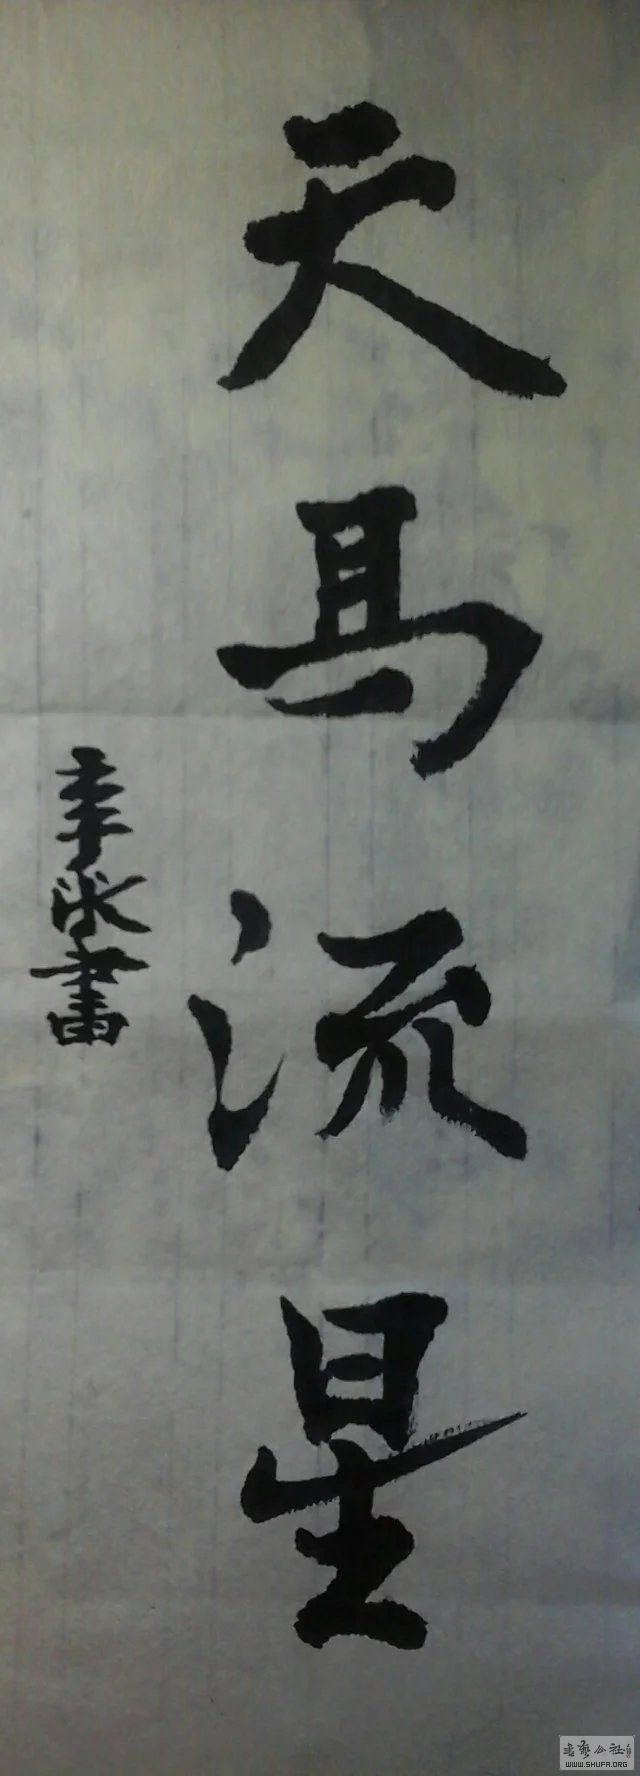 天马流星
书艺公社
WWW.SHUFA.ORG